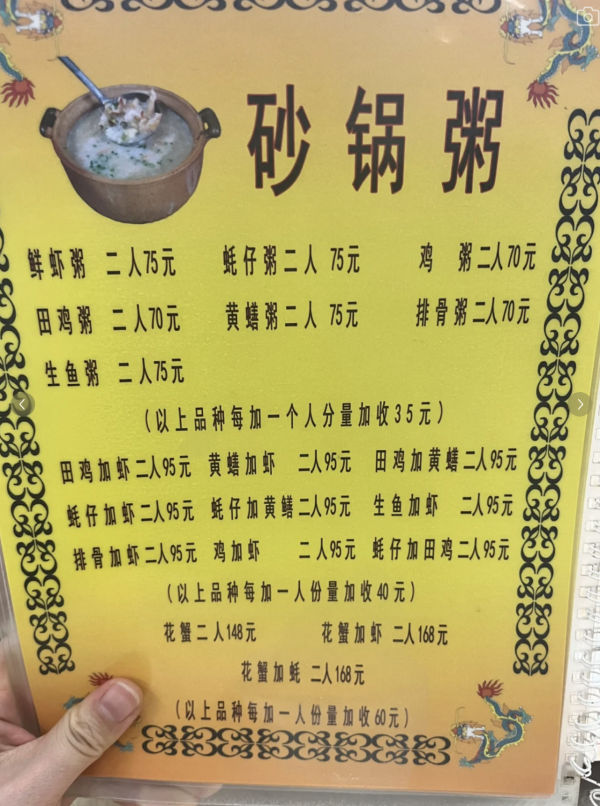 砂锅粥
鲜虾粥 二人75元 蚝仔粥二人 75元 鸡 粥二人70元
田鸡粥 二人70元 黄鳝粥二人 75元 排骨粥二人70元
生鱼粥 二人75元
（以上品种每加一个人分量加收35元）
田鸡加虾二人95元 黄鳝加虾 二人95元 田鸡加黄鳝二人95元
蚝仔加虾二人95元 蚝仔加黄鳝二人95元 生鱼加虾 二人95元
排骨加虾二人95元 鸡加虾 二人95元 蚝仔加田鸡二人95元
（以上品种每加一人份量加收40元）
花蟹二人148元 花蟹加虾 二人168元
花蟹加蚝 二人168元
（以上品种每加一人份量加收60元）